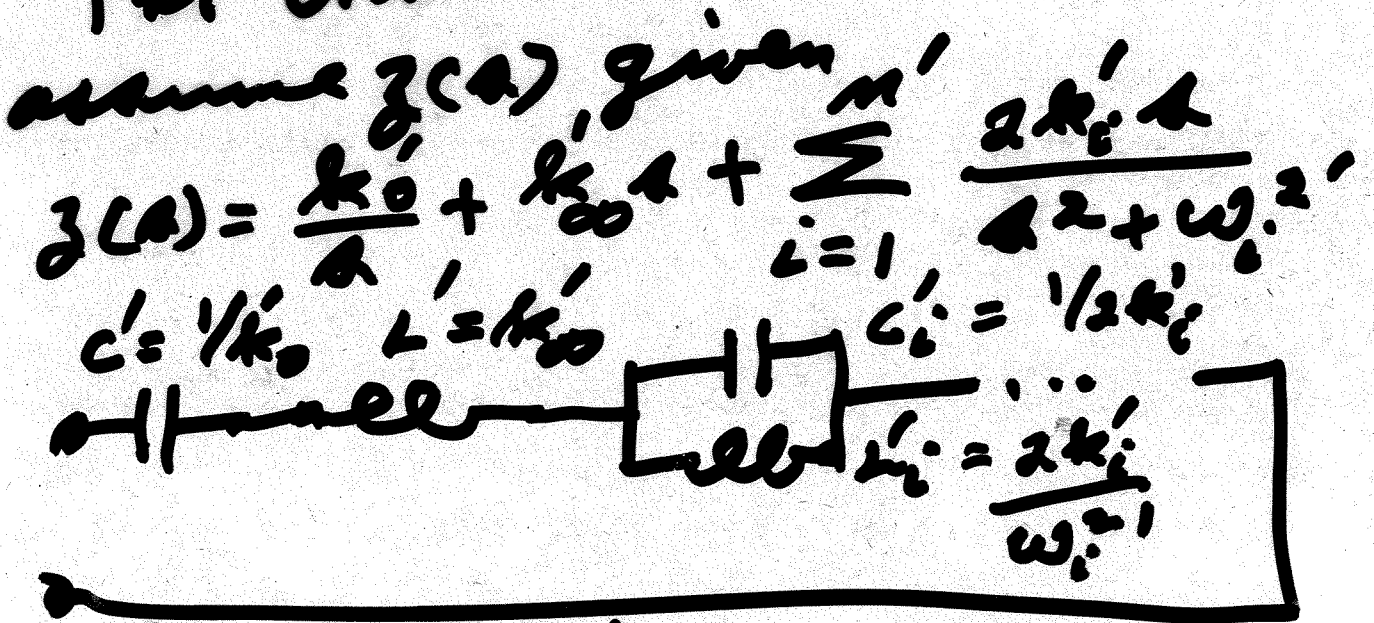 assume z(s) given
z(s) = k₀'/s + k∞' s + Σ_{i=1}^{n'} 2k_i' s / (s² + ω_i²')
C' = 1/k₀' L' = k∞' C_i' = 1/2k_i'
...
L_i' = 2k_i' / ω_i²'